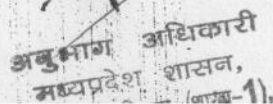 अनुभाग अधिकारी
मध्यप्रदेश शासन,
(शाखा-1)